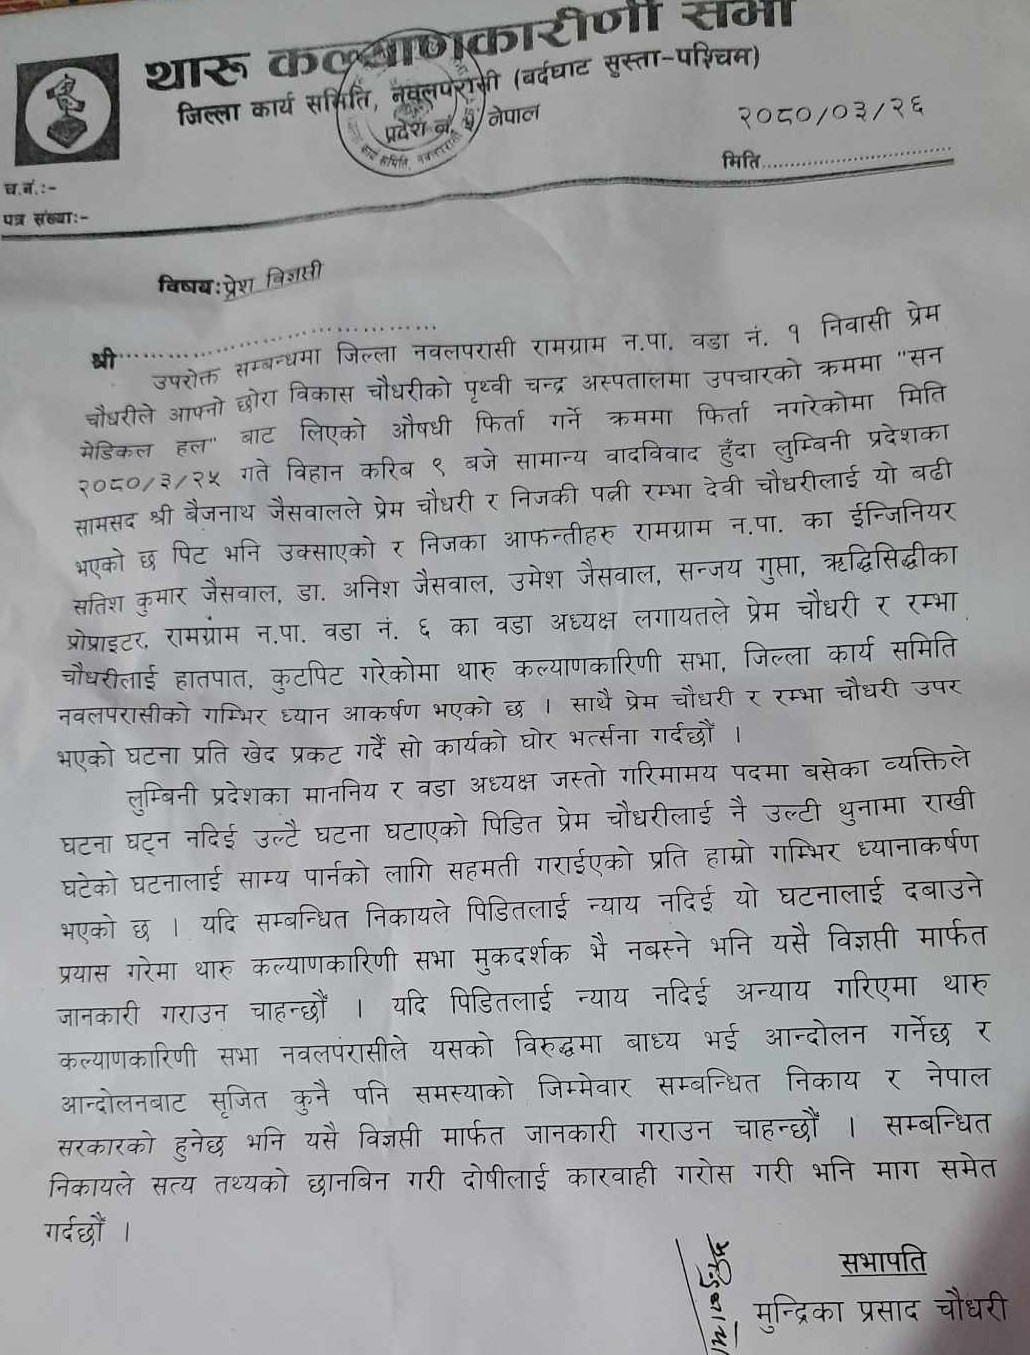 थारू कल्याणकारीणी सभा
जिल्ला कार्य समिति, नवलपरासी (बर्दघाट सुस्ता-पश्चिम)
प्रदेश नं. नेपाल
२०८०/०३/२६
मिति..............................
च.नं.:-
पत्र संख्या:-
विषय: प्रेश विज्ञप्ती
श्री..............................
उपरोक्त सम्बन्धमा जिल्ला नवलपरासी रामग्राम न.पा. वडा नं. १ निवासी प्रेम
चौधरीले आफ्नो छोरा विकास चौधरीको पृथ्वी चन्द्र अस्पतालमा उपचारको क्रममा "सन
मेडिकल हल" बाट लिएको औषधी फिर्ता गर्ने क्रममा फिर्ता नगरेकोमा मिति
२०८०/३/२५ गते विहान करिब ९ बजे सामान्य वादविवाद हुँदा लुम्बिनी प्रदेशका
सामसद श्री बैजनाथ जैसवालले प्रेम चौधरी र निजकी पत्नी रम्भा देवी चौधरीलाई यो बढी
भएको छ पिट भनि उक्साएको र निजका आफन्तीहरु रामग्राम न.पा. का ईन्जिनियर
सतिश कुमार जैसवाल, डा. अनिश जैसवाल, उमेश जैसवाल, सन्जय गुप्ता, ऋद्धिसिद्धीका
प्रोप्राइटर, रामग्राम न.पा. वडा नं. ६ का वडा अध्यक्ष लगायतले प्रेम चौधरी र रम्भा
चौधरीलाई हातपात, कुटपिट गरेकोमा थारु कल्याणकारिणी सभा, जिल्ला कार्य समिति
नवलपरासीको गम्भिर ध्यान आकर्षण भएको छ । साथै प्रेम चौधरी र रम्भा चौधरी उपर
भएको घटना प्रति खेद प्रकट गर्दै सो कार्यको घोर भर्त्सना गर्दछौं ।
लुम्बिनी प्रदेशका माननिय र वडा अध्यक्ष जस्तो गरिमामय पदमा बसेका व्यक्तिले
घटना घट्न नदिई उल्टै घटना घटाएको पिडित प्रेम चौधरीलाई नै उल्टी थुनामा राखी
घटेको घटनालाई साम्य पार्नको लागि सहमती गराईएको प्रति हाम्रो गम्भिर ध्यानाकर्षण
भएको छ । यदि सम्बन्धित निकायले पिडितलाई न्याय नदिई यो घटनालाई दबाउने
प्रयास गरेमा थारु कल्याणकारिणी सभा मुकदर्शक भै नबस्ने भनि यसै विज्ञप्ती मार्फत
जानकारी गराउन चाहन्छौं । यदि पिडितलाई न्याय नदिई अन्याय गरिएमा थारु
कल्याणकारिणी सभा नवलपरासीले यसको विरुद्धमा बाध्य भई आन्दोलन गर्नेछ र
आन्दोलनबाट सृजित कुनै पनि समस्याको जिम्मेवार सम्बन्धित निकाय र नेपाल
सरकारको हुनेछ भनि यसै विज्ञप्ती मार्फत जानकारी गराउन चाहन्छौं । सम्बन्धित
निकायले सत्य तथ्यको छानबिन गरी दोषीलाई कारवाही गरोस गरी भनि माग समेत
गर्दछौं ।
सभापति
मुन्द्रिका प्रसाद चौधरी